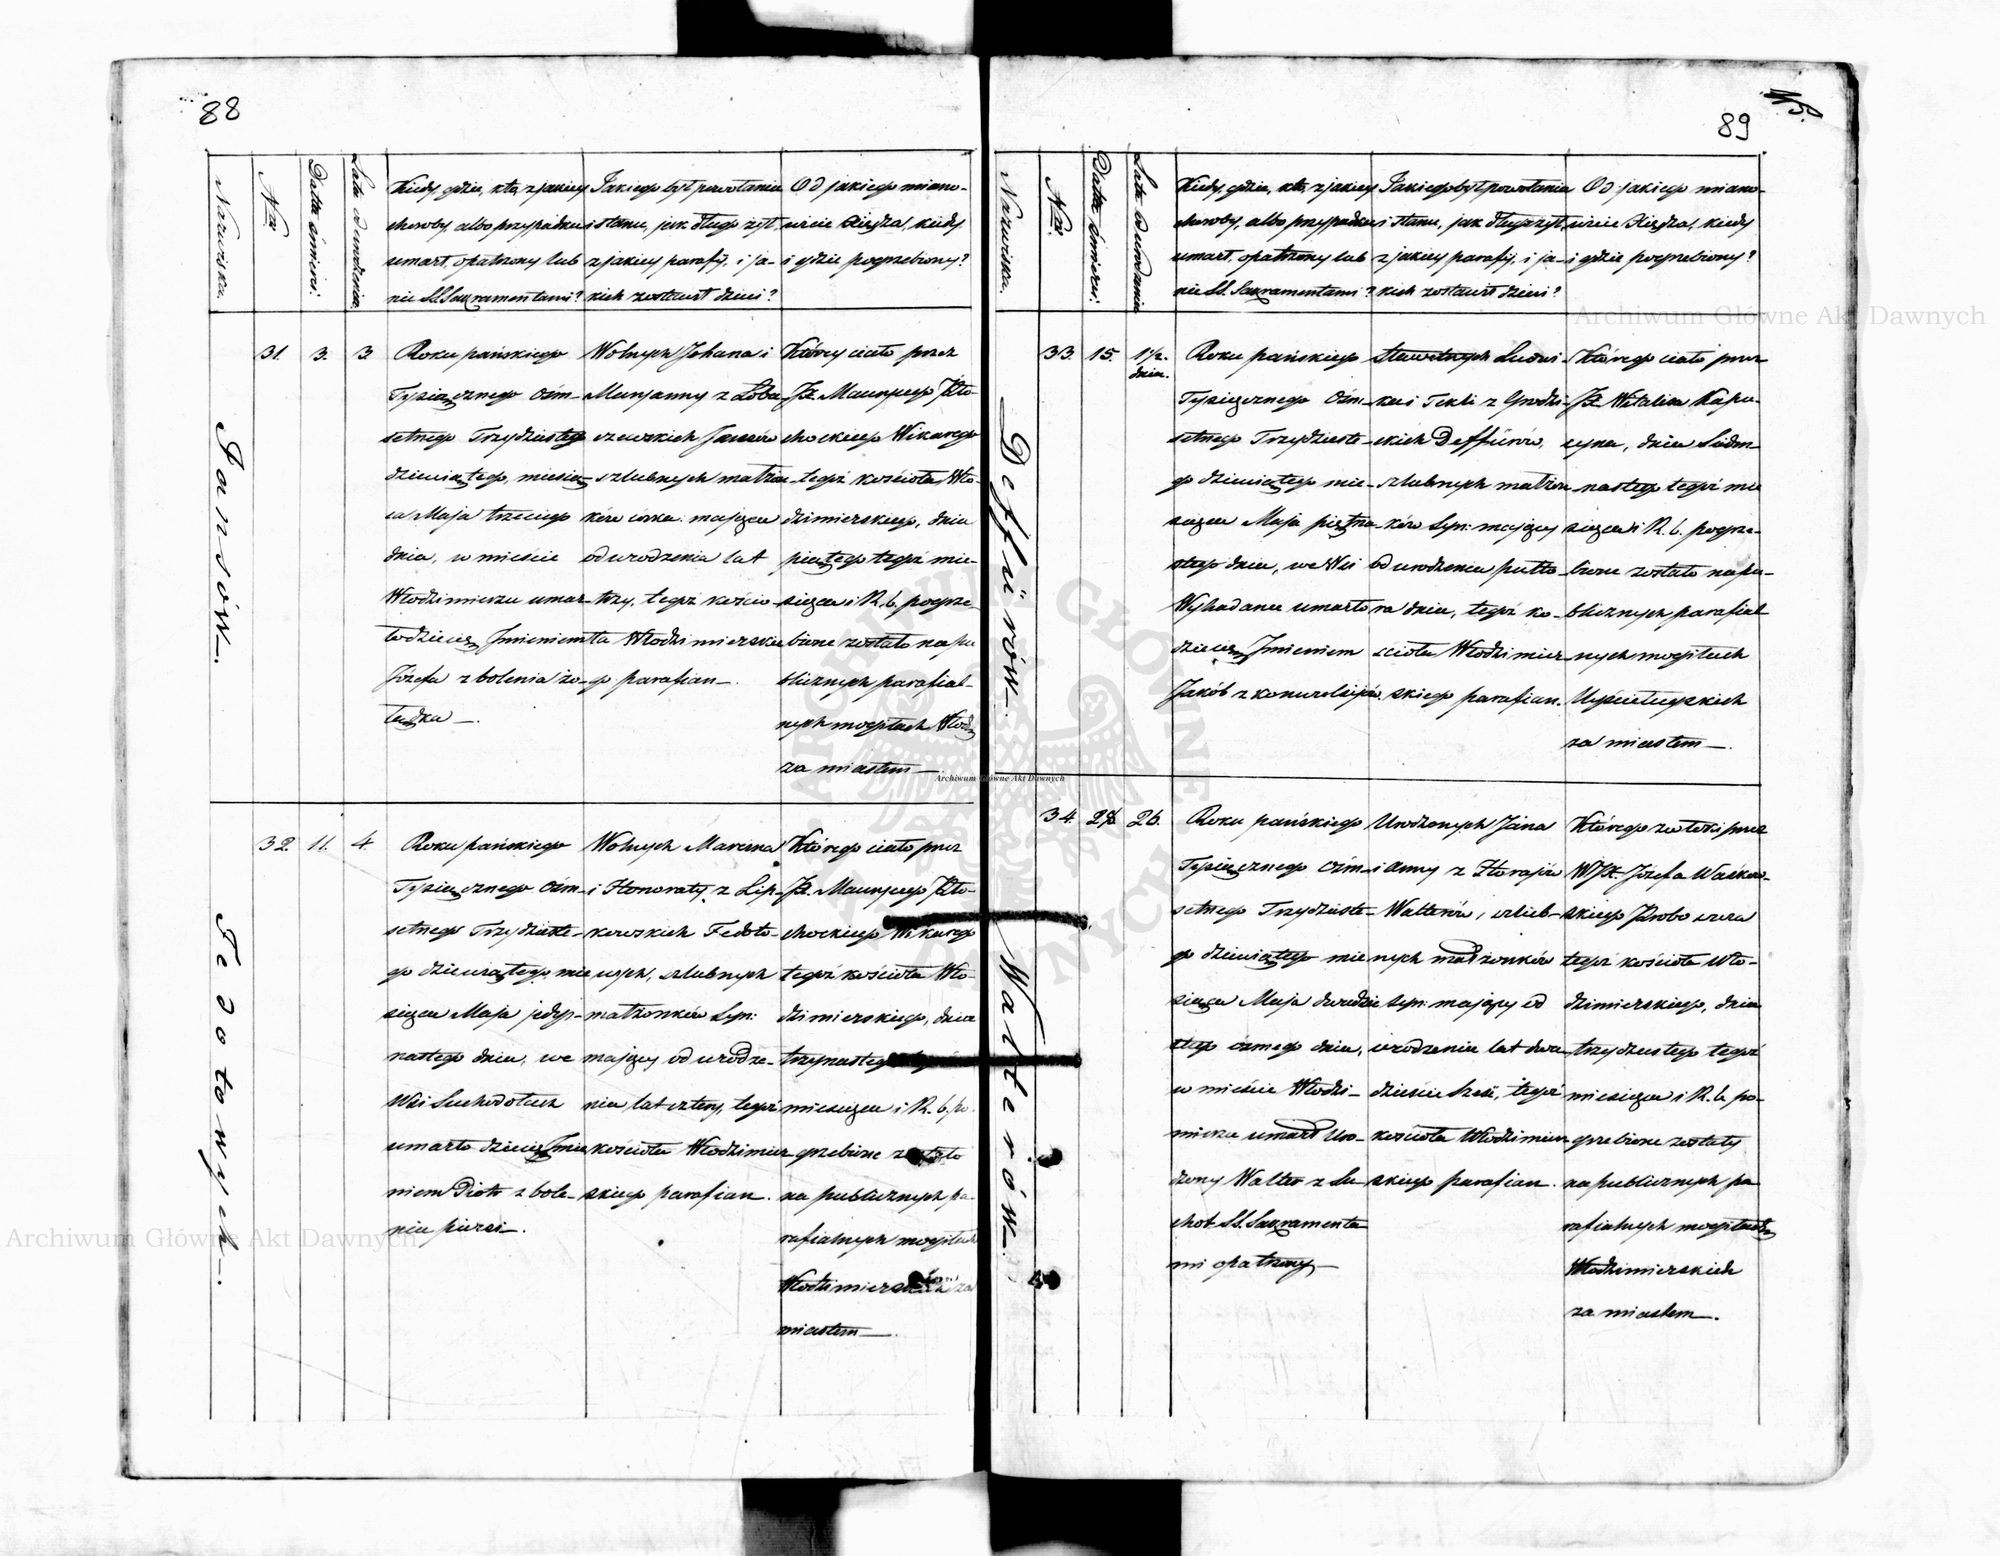 88
Nazwiska.
Nro
Data śmierci.
Lata od urodzenia.
Kiedy, gdzie, kto, z jakiey
choroby, albo przypadku
umarł, opatrzony lub
nie SS. Sakramentami?
Jakiego był powołania
i stanu, jak długo żył,
z jakiey parafij, i ja-
kich zostawił dzieci?
Od jakiego miano-
wicie Xiędza, kiedy
i gdzie pogrzebiony?
Jansów.
31.
3.
3.
Roku pańskiego
Tysiącznego Ośm-
setnego Trzydziestego
dziewiątego, miesią-
ca Maja trzeciego
dnia, w mieście
Włodzimierzu umar-
ło dziecię Imieniem
Józefa z bolenia żo-
łądka.
Wolnych Johana i
Maryanny z Łoba-
czewskich Jansów
szlubnych małżon-
ków córka: mająca
od urodzenia lat
trzy, tegoż kościo-
ła Włodzimierskie-
go parafian.
Którey ciało przez
JX. Maurycego Kło-
chockiego Wikarego
tegoż kościoła Wło-
dzimierskiego, dnia
piątego tegoż mie-
siąca i R. b. pogrze-
bione zostało na pu
blicznych parafial-
nych mogiłach Włodz
za miastem.
Fedotowych.
32.
11.
4.
Roku pańskiego
Tysiącznego Ośm-
setnego Trzydzieste-
go dziewiątego mie
siąca Maja jedy-
nastego dnia, we
Wsi Suchodołach
umarło dziecię Imie
niem Piotr z bole-
nia piersi.
Wolnych Marcina
i Honoraty z Lip-
kowskich Fedoto-
wych, szlubnych
małżonków Syn:
mający od urodze-
nia lat cztery, tegoż
kościoła Włodzimier-
skiego parafian.
Którego ciało przez
JX. Maurycego Kło-
chockiego Wikarego
tegoż kościoła Wło-
dzimierskiego, dnia
trzynastego
miesiąca i R. b. po
grzebione zostało
na publicznych pa-
rafialnych mogiłach
Włodzimierskich za
miastem.
89
Nazwiska.
Nro
Data śmierci.
Lata od urodzenia
Kiedy, gdzie, kto, z jakiey
choroby, albo przypadku
umarł, opatrzony lub
nie SS. Sakramentami?
Jakiego był powołania
i stanu, jak długo żył,
z jakiey parafij, i ja-
kich zostawił dzieci?
Od jakiego miano-
wicie Xiędza, kiedy
i gdzie pogrzebiony?
Deffürów.
33.
15.
1½.
dnia.
Roku pańskiego
Tysiącznego Ośm-
setnego Trzydzieste-
go dziewiątego mie-
siąca Maja piętna-
stego dnia, we Wsi
umarło
dziecię Imieniem
Jakób z konwulsijów.
Sławetnych Ludwi-
ka i Tekli z Grodzi-
ckich Deffürów,
szlubnych małżon
ków Syn: mający
od urodzenia półto-
ra dnia, tegoż ko-
ścioła Włodzimier-
skiego parafian.
Którego ciało przez
JX. Witalisa Kapu-
cyna, dnia Siedm-
nastego tegoż mie
siąca i R. b. pogrze-
bione zostało na pu-
blicznych parafial
nych mogiłach
Uściługskich
za miastem.
Walterów.
34.
28
26.
Roku pańskiego
Tysiącznego Ośm-
setnego Trzydzieste-
go dziewiątego mie
siąca Maja dwudzie
stego ósmego dnia,
w mieście Włodzi-
mierzu umarł Uro-
dzony Walter z Su-
chot SS. Sakramenta
mi opatrzony.
Urodzonych Jana
i Anny z Horajów
Walterów, szlub-
nych małżonków
Syn: mający od
urodzenia lat dwa-
dzieścia sześć, tegoż
kościoła Włodzimier-
skiego parafian.
Którego zwłoki przez
WJX. Józefa Waśkow-
skiego Proboszcza
tegoż kościoła Wło-
dzimierskiego, dnia
trzydziestego tegoż
miesiąca i R. b. po-
grzebione zostały
na publicznych pa
rafialnych mogiłach
Włodzimierskich
za miastem.
Archiwum Główne Akt Dawnych
Archiwum Główne Akt Dawnych
Archiwum Główne Akt Dawnych